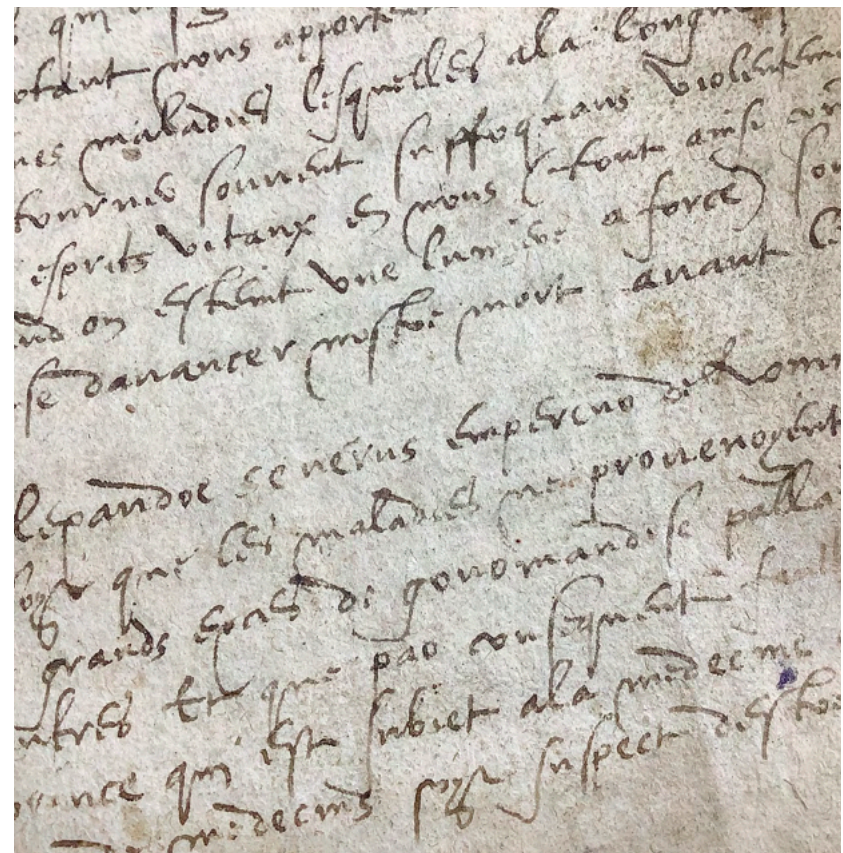 qui
otant nous apporte
nes maladies lesquelles a la longue
tournes souvent suffoquans violentem
esprits vitaux en nous (font ainsi com
nd on esteint une lumiere a force) sou
se d'avancer nostre mort avant le
lexandre severus empereur de Romm
que les maladies ne provenoyent
grands exces de gourmandise
autres Et que par consequent
prince qui est subiet a la medecine
de medecins soyt suspect destre